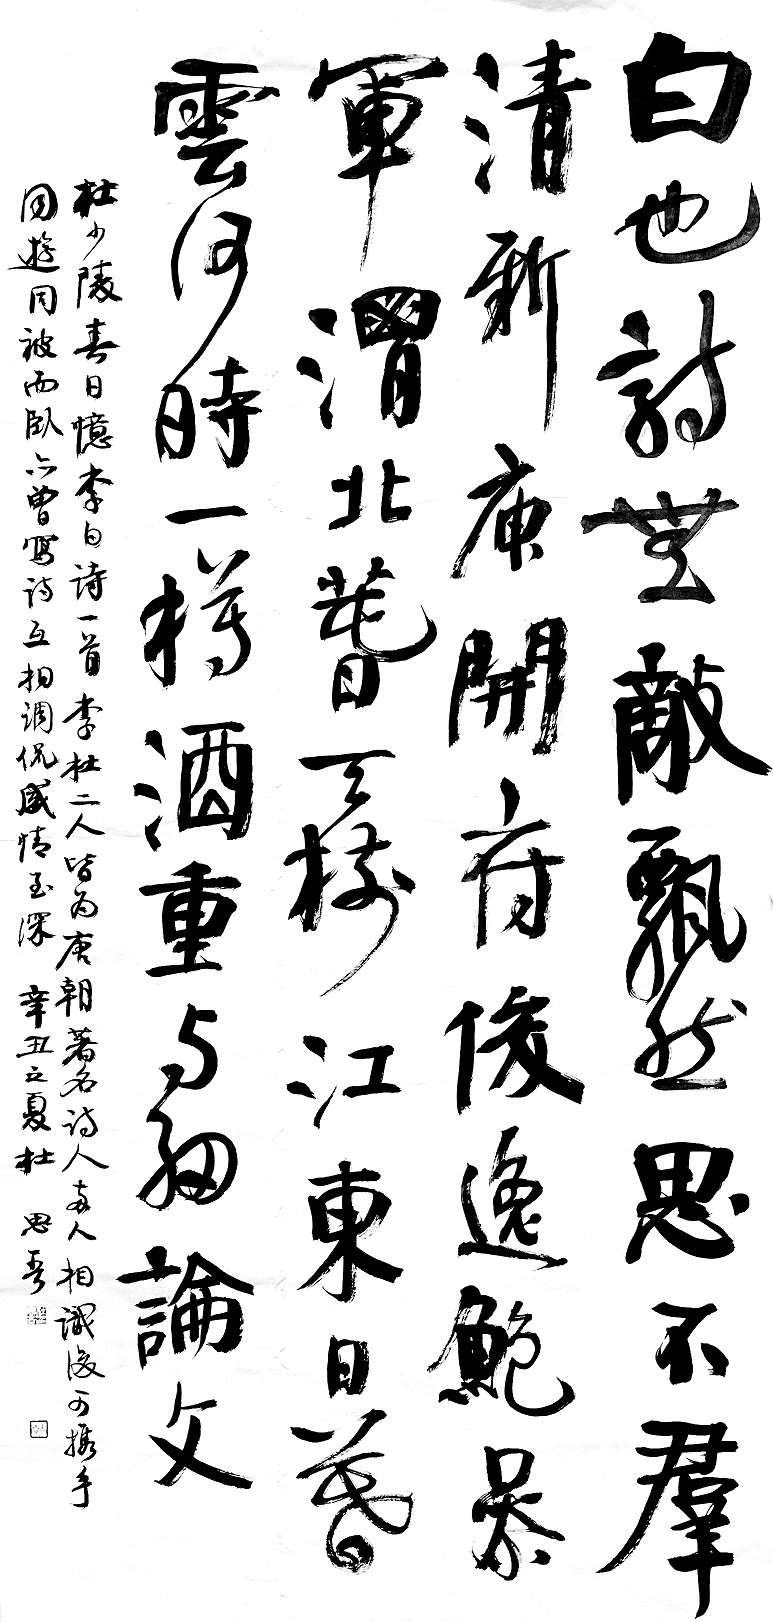 白也詩無敵飄然思不羣
清新庾開府俊逸鮑參
軍渭北春天樹江東日暮
雲何時一樽酒重与細論文
杜少陵春日憶李白诗一首李杜二人皆为唐朝著名诗人两人相識後可攜手
同遊同被而臥亦曾寫诗互相調侃感情至深 辛丑之夏杜思